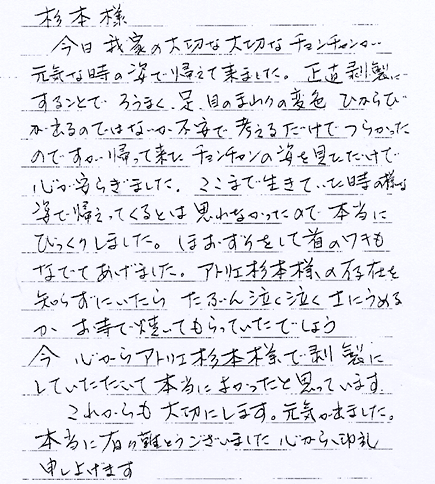 杉本様
今日我家の大切な大切なチョンチョンが
元気な時の姿で帰えて来ました。正直剥製に
することで ろうまく、足、目のまわりの変色 ひからび
が出るのではないか不安で 考えるだけで つらかった
のですが 帰って来た チョンチョンの姿を見ただけで
心が安らぎました。ここまで生きていた時の様な
姿で帰えってくるとは 思わなかったので 本当に
びっくりしました。ほおずりをして首のワキも
なでてあげました。アトリエ杉本様の存在を
知らずにいたら たぶん泣く泣く土にうめる
か お寺で焼いてもらっていたでしょう
今 心からアトリエ杉本様で剥製に
していただいて 本当によかったと思っています。
これからも 大切にします。元気が出ました。
本当に有り難とうございました 心から御礼
申し上げます